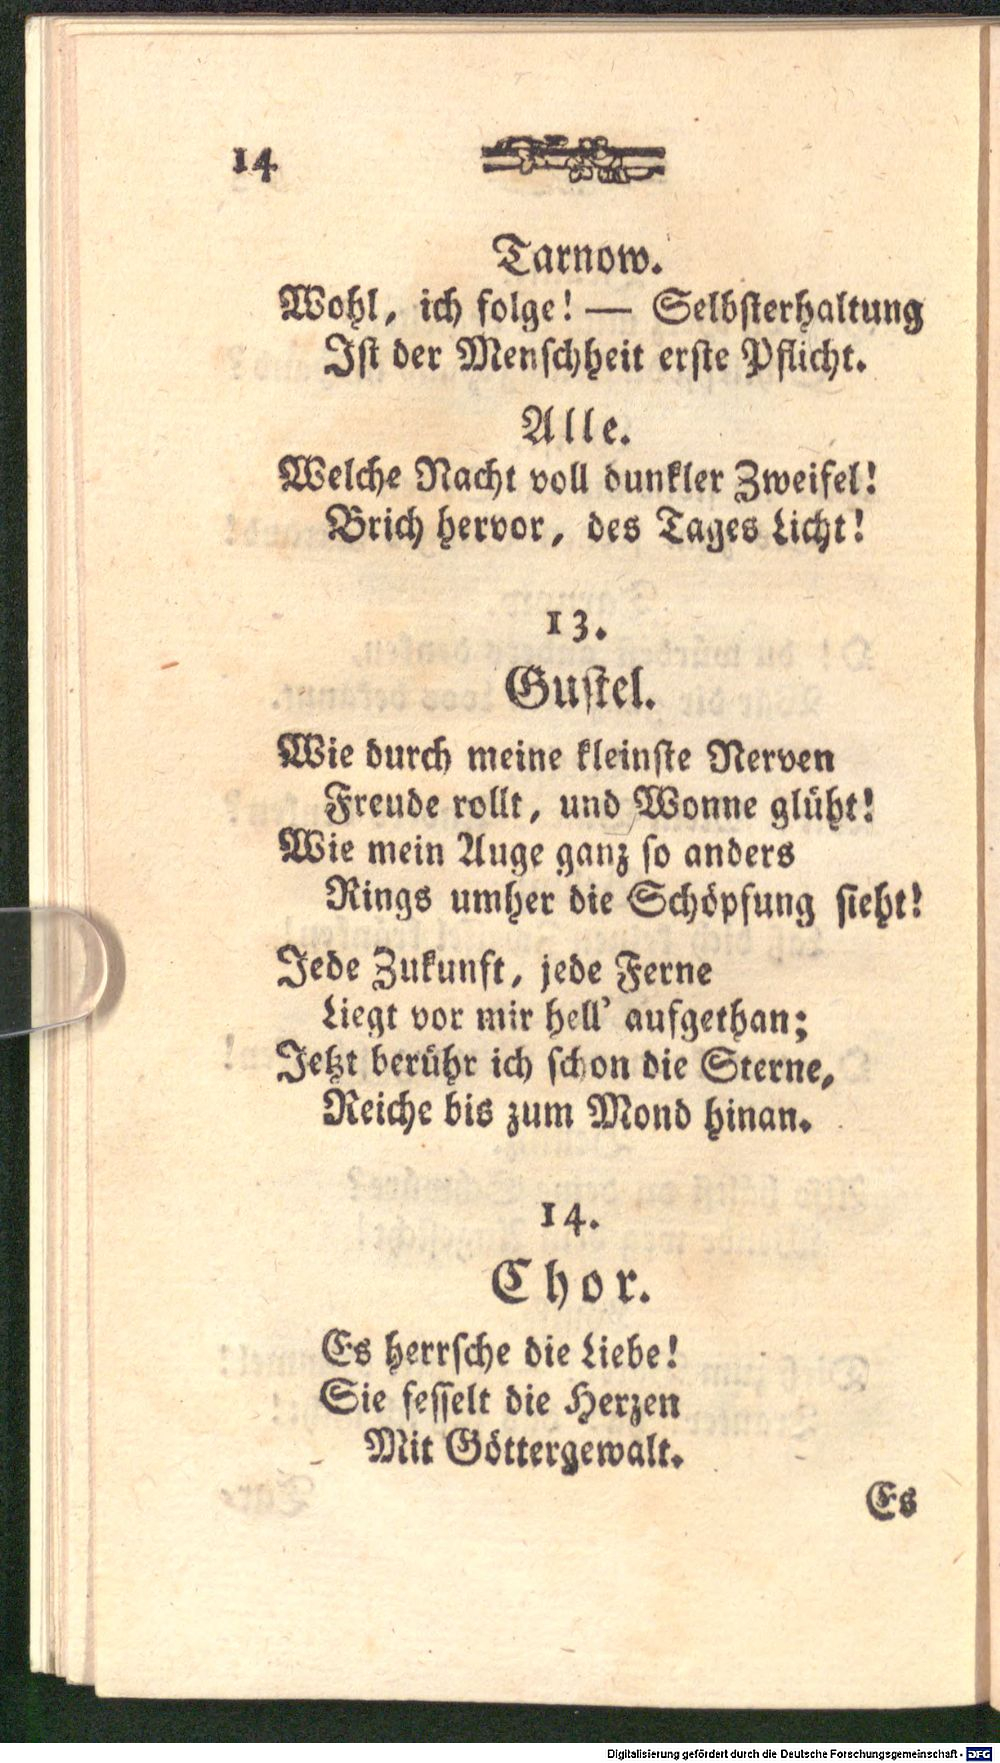 14
Tarnow.
Wohl, ich folge! — Selbsterhaltung
Ist der Menschheit erste Pflicht.
Alle.
Welche Nacht voll dunkler Zweifel!
Brich hervor, des Tages Licht!
13.
Gustel.
Wie durch meine kleinste Nerven
Freude rollt, und Wonne glüht!
Wie mein Auge ganz so anders
Rings umher die Schöpfung sieht!
Jede Zukunft, jede Ferne
Liegt vor mir hell' aufgethan;
Jetzt berühr ich schon die Sterne,
Reiche bis zum Mond hinan.
14.
Chor.
Es herrsche die Liebe!
Sie fesselt die Herzen
Mit Göttergewalt.
Es
Digitalisierung gefördert durch die Deutsche Forschungsgemeinschaft - DFG